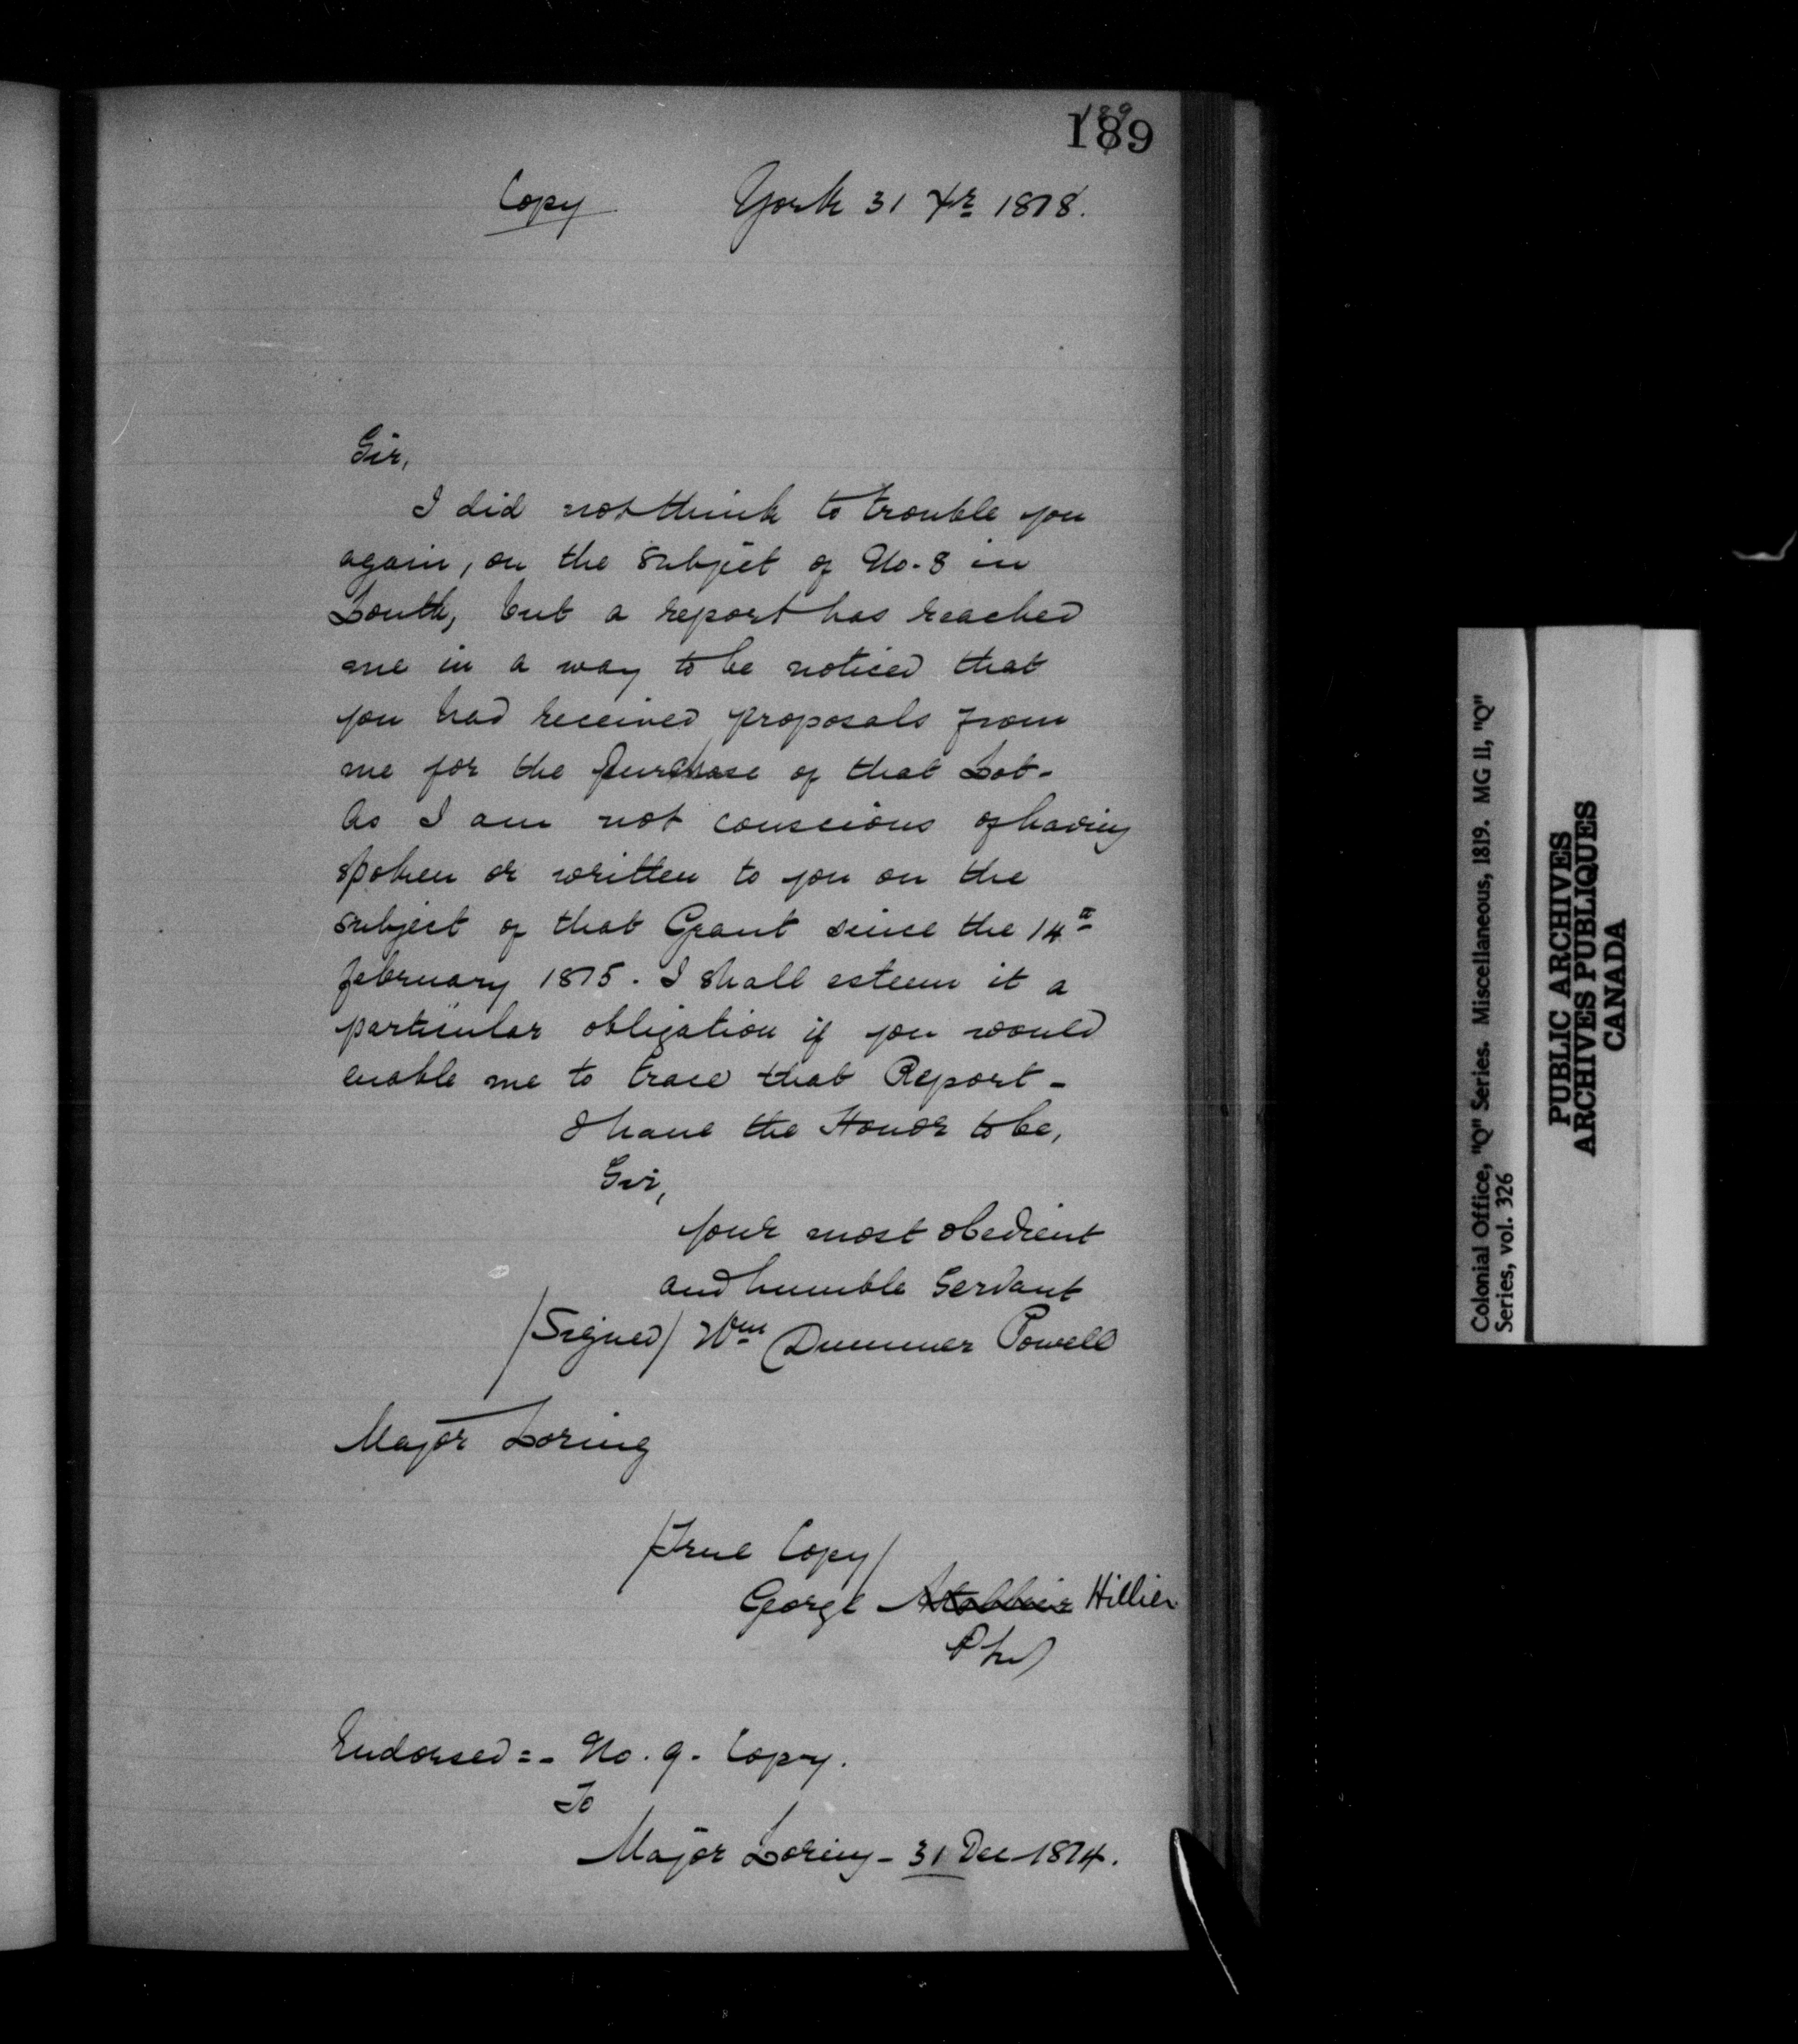 189
189
Copy York 31 Xr 1818.
Sir,
I did not think to trouble you
again, on the subject of No. 8 in
South, but a report has reached
me in a way to be noticed that
you had received proposals from
me for the purchase of that Lot-
As I am not conscious of having
spoken or written to you on the
subject of that Grant since the 14th
february 1815. I shall esteem it a
particular obligation if you would
enable me to trace that Report -
I have the Honor to be,
Sir,
Your most obedient
and humble Servant
/Signed/ Wm Dummer Powell
Major Loring
/True Copy/
George Hillier
Endorsed:- No. 9. Copy.
To
Major Loring - 31 Dec 1814.
Colonial Office, "Q" Series. Miscellaneous, 1819. MG 11, "Q"
Series, vol. 326
PUBLIC ARCHIVES
ARCHIVES PUBLIQUES
CANADA